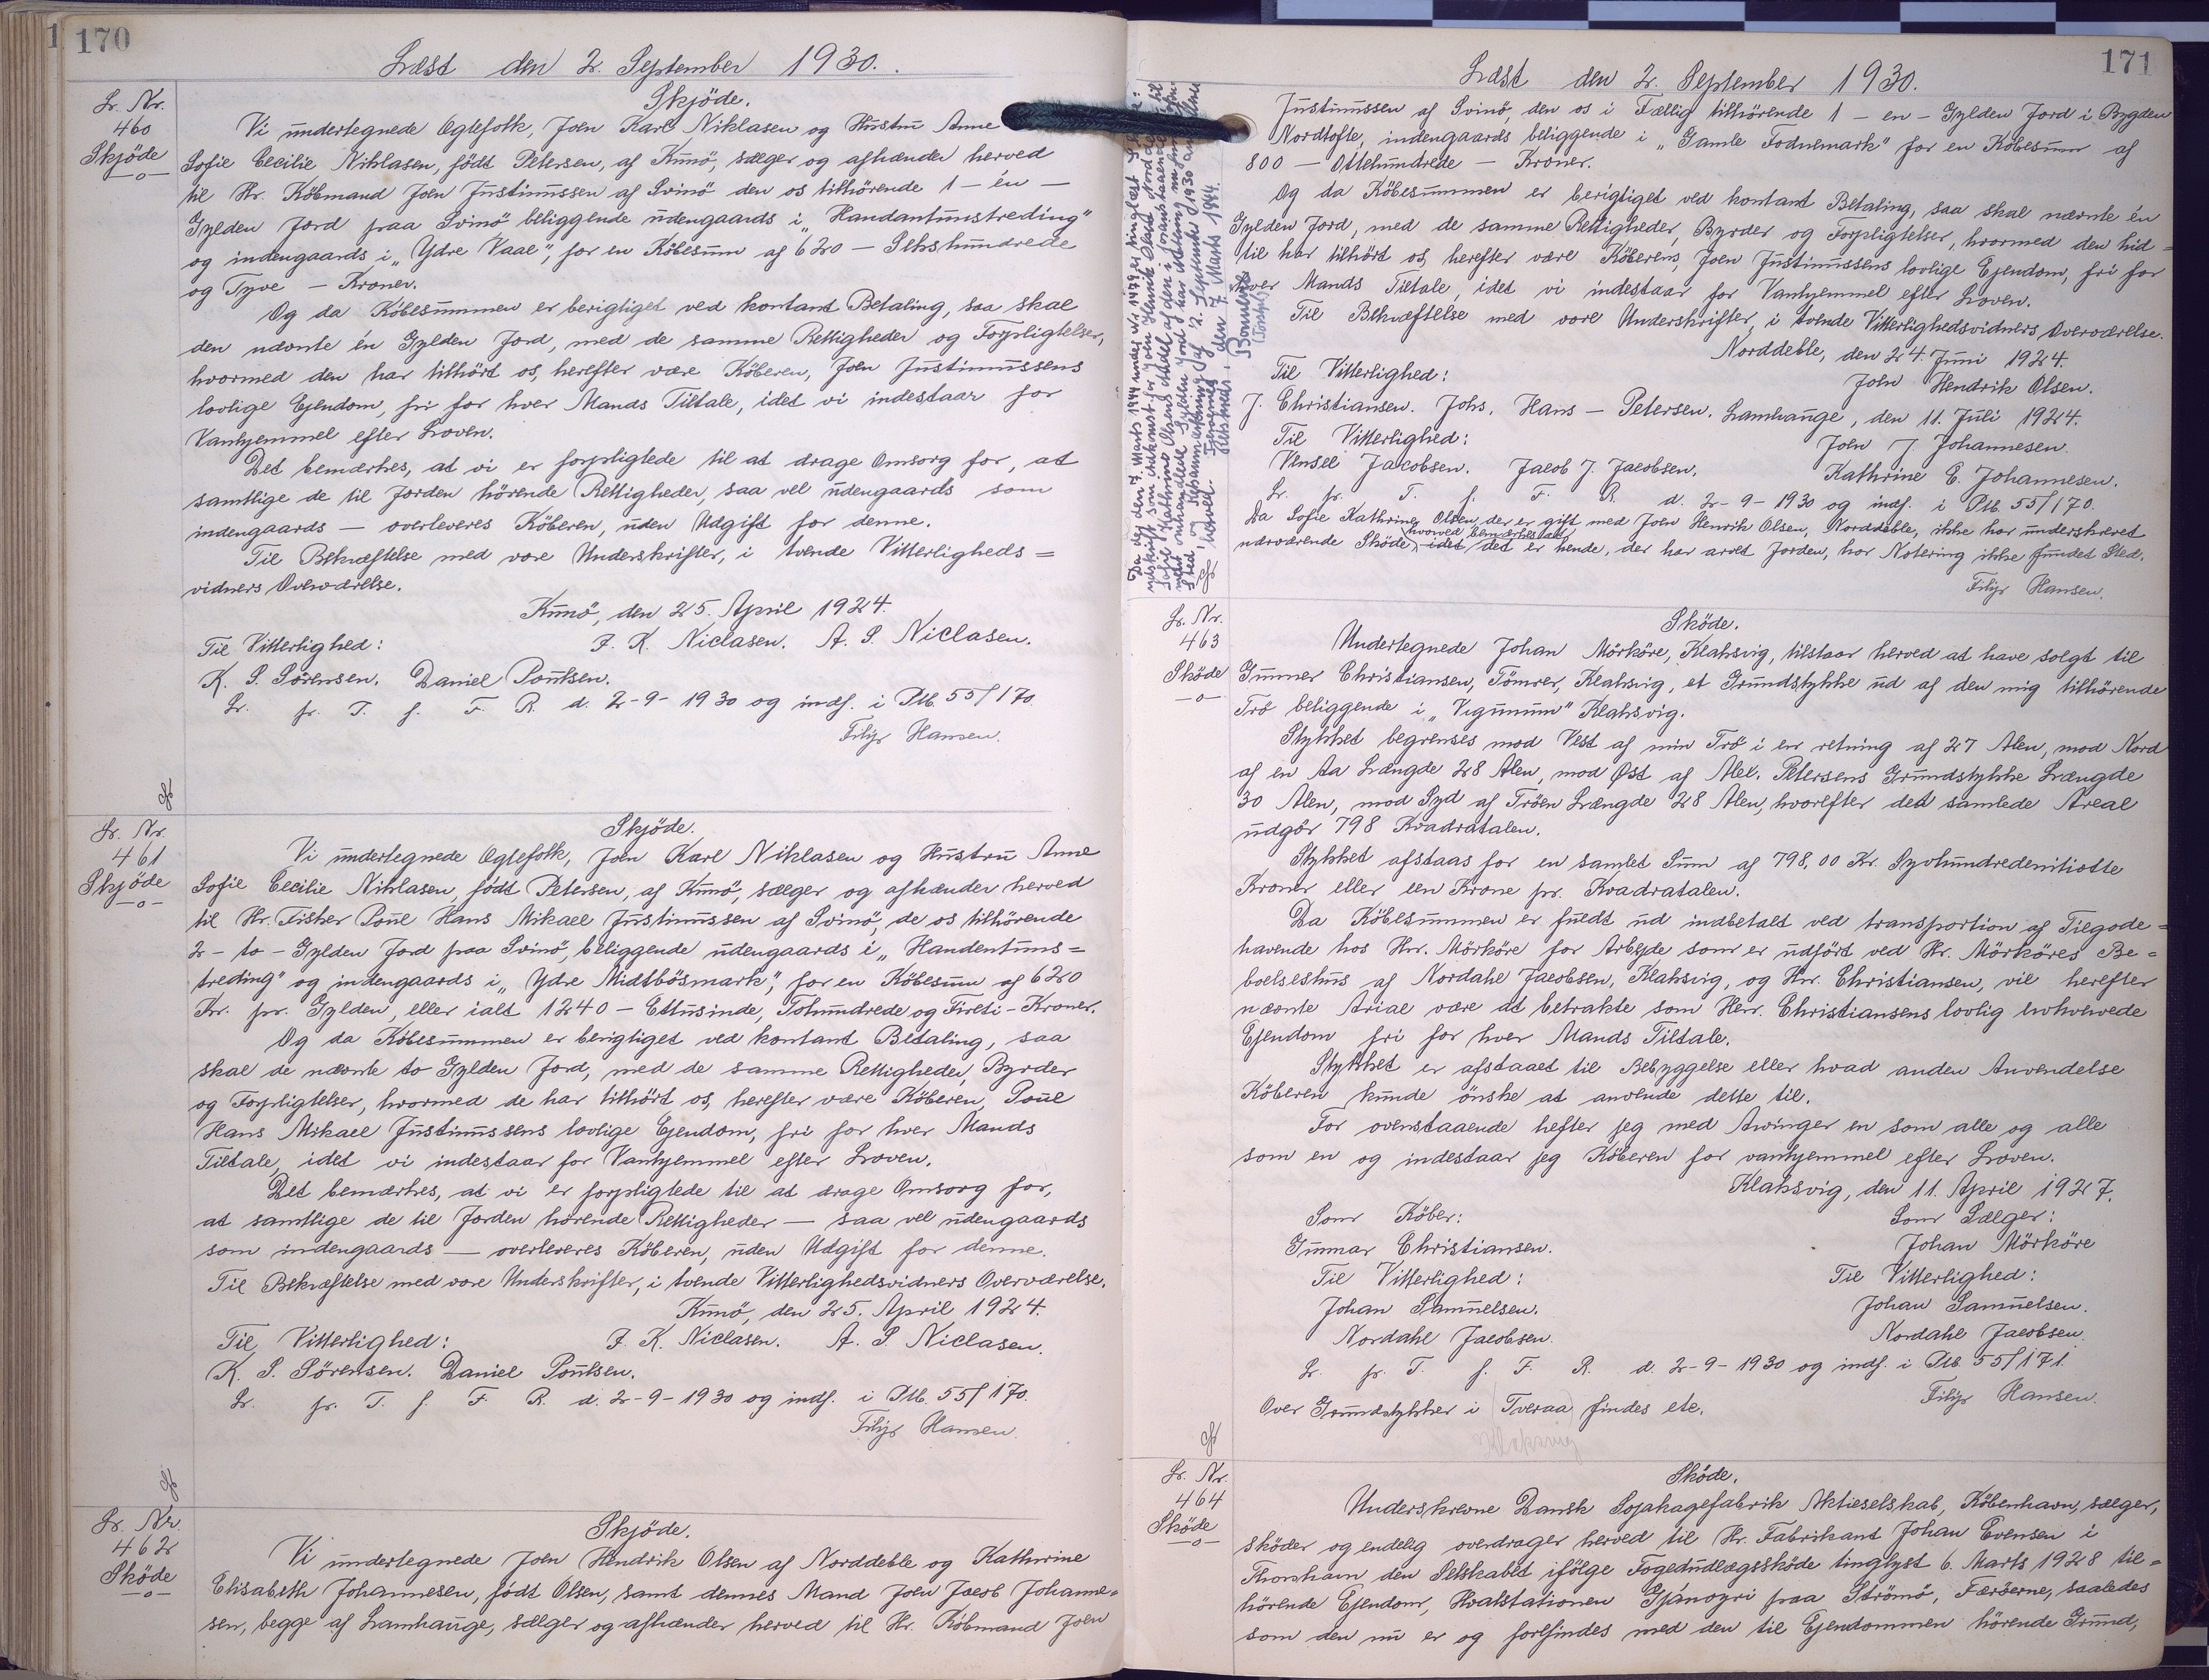 170
Læst den 2. September 1930.
Lr. Nr.
460
Skjöde
—o—
Skjöde.
Vi undertegnede Ægtefolk, Joen Karl Niklasen og Hustru Anne
Sofie Cecilie Niklasen, födt Petersen, af Kunö, sælger og afhænder herved
til Hr. Köbmand Joen Justinussen af Svinö den os tilhörende 1 – én –
Gylden Jord paa Svinö beliggende udengaards i „Handantunstreding"
og indengaards i „Ydre Vaal", for en Köbesum af 620 – Sekshundrede
og Tyve – Kroner.
Og da Köbesummen er berigtiget ved kontant Betaling, saa skal
den nævnte én Gylden Jord, med de samme Rettigheder og Forpligtelser,
hvormed den har tilhört os, herefter være Köberen, Joen Justinussens
lovlige Ejendom, fri for hver Mands Tiltale, idet vi indestaar for
Vanhjemmel efter Loven.
Det bemærkes, at vi er forpligtede til at drage Omsorg for, at
samtlige de til Jorden hörende Rettigheder, saa vel udengaards som
indengaards – overleveres Köberen, uden Udgift for denne.
Til Bekræftelse med vore Underskrifter, i tvende Vitterligheds=
vidners Overværelse.
Kunö, den 25. April 1924.
Til Vitterlighed: J. K. Niclasen. A. S. Niclasen.
K. S. Sörensen. Daniel Poulsen.
Lr. fr. T. f. F. R. d. 2-9-1930 og indf. i Ptb. 55/170.
Filip Hansen.
Lr. Nr.
461
Skjöde
—o—
Skjöde.
Vi undertegnede Ægtefolk, Joen Karl Niklasen og Hustru Anne
Sofie Cecilie Niklasen, födt Petersen, af Kunö, sælger og afhænder herved
til Hr. Fisher Poul Hans Mikael Justinussen af Svinö, de os tilhörende
2 – to – Gylden Jord paa Svinö, beliggende udengaards i „Handentuns=
treding" og indengaards i „Ydre Midtbösmark", for en Köbesum af 620
Kr. pr. Gylden, eller ialt 1240 – Ettusinde, Tohundrede og Fireti – Kroner.
Og da Köbesummen er berigtiget ved kontant Betaling, saa
skal de nævnte to Gylden Jord, med de samme Rettigheder, Byrder
og Forpligtelser, hvormed de har tilhört os, herefter være Köberen, Poul
Hans Mikael Justinussens lovlige Ejendom, fri for hver Mands
Tiltale, idet vi indestaar for Vanhjemmel efter Loven.
Det bemærkes, at vi er forpligtede til at drage Omsorg for,
at samtlige de til Jorden hörende Rettigheder – saa vel udengaards
som indengaards – overleveres Köberen, uden Udgift for denne.
Til Bekræftelse med vore Underskrifter, i tvende Vitterlighedsvidners Overværelse.
Kunö, den 25. April 1924.
Til Vitterlighed: J. K. Niclasen. A. S. Niclasen.
K. S. Sørensen. Daniel Poulsen.
Lr. fr. T. f. F. R. d. 2-9-1930 og indf. i Ptb. 55/170.
Filip Hansen.
Lr. Nr.
462
Sköde
—o—
Skjöde.
Vi undertegnede Joen Hendrik Olsen af Norddeble og Kathrine
Elisabeth Johannesen, födt Olsen, samt dennes Mand Joen Jacob Johanne=
sen, begge af Lamhauge, sælger og afhænder herved til Hr. Köbmand Joen
171
Læst den 2. September 1930.
Justinussen af Svinö, den os i Fællig tilhörende 1 – en – Gylden Jord i Bygden
Nordtofte, indengaards beliggende i „Gamle Fodnemark" for en Köbesum af
800 – Ottehundrede – Kroner.
Og da Köbesummen er berigtiget ved kontant Betaling, saa skal nævnte én
Gylden Jord, med de samme Rettigheder, Byrder og Forpligtelser, hvormed den hid=
til har tilhört os, herefter være Köberens, Joen Justinussens lovlige Ejendom, fri for
hver Mands Tiltale, idet vi indestaar for Vanhjemmel efter Loven.
Til Bekræftelse med vore Underskrifter, i tvende Vitterlighedsvidners Overværelse.
Norddeble, den 24. Juni 1924.
Til Vitterlighed: John Hendrik Olsen.
J. Christiansen. Johs. Hans – Petersen. Lamhauge, den 11. Juli 1924.
Til Vitterlighed: John J. Johannesen.
Jacobsen. Jacob J. Jacobsen. Kathrine E. Johannesen.
Lr. fr. T. f. F. R. d. 2-9-1930 og indf. i Ptb. 55/170.
Da Sofie Kathrine Olsen, der er gift med Joen Henrik Olsen, Norddeble, ikke har underskrevet
nærværende Sköde, hvorved bemærkes at idet det er hende, der har arvet Jorden, har Notering ikke fundet Sted.
Filip Hansen.
den 7. Marts 1944.
Lr. Nr.
463
Sköde
—o—
Sköde.
Undertegnede Johan Mörköre, Klaksvig, tilstaar herved at have solgt til
Gunnar Christiansen, Tömrer, Klaksvig, et Grundstykke ud af den mig tilhörende
Trö beliggende i „Vigunum" Klaksvig.
Stykket begrenses mod Vest af min Trö i en retning af 27 Alen, mod Nord
af en Aa Længde 28 Alen, mod Øst af Alex. Petersens Grundstykke Længde
30 Alen, mod Syd af Tröen Længde 28 Alen, hvorefter det samlede Areal
udgör 798 Kvadratalen.
Stykket afstaas for en samlet Sum af 798,00 Kr. Syvhundredenitiotte
Kroner eller een Krone pr. Kvadratalen.
Da Köbesummen er fuldt ud indbetalt ved transportion af Tilgode=
havende hos Hrr. Mörköre for Arbejde som er udfört ved Hr. Mörköres Be=
boelseshus af Nordahl Jacobsen, Klaksvig, og Hrr. Christiansen, vil herefter
nævnte Arial være at betrakte som Herr. Christiansens lovlig erhvervede
Ejendom fri for hver Mands Tiltale.
Stykket er afstaaet til Bebyggelse eller hvad anden Anvendelse
Köberen kunde önske at anvende dette til.
For ovenstaaende hefter jeg med Arvinger en som alle og alle
som en og indestaar jeg Köberen for vanhjemmel efter Loven.
Klaksvig, den 11. April 1927.
Som Köber: Som Sælger:
Gunnar Christiansen. Johan Mörköre
Til Vitterlighed: Til Vitterlighed:
Johan Samuelsen. Johan Samuelsen.
Nordahl Jacobsen. Nordahl Jacobsen.
Lr. fr. T. f. F. R. d. 2-9-1930 og indf. i Ptb. 55/171.
Filip Hansen.
Over Grundstykker i (Tveraa) findes etc.
Klaksvig
Lr. Nr.
464
Sköde
—o—
Sköde.
Underskrevne Dansk Sojakagefabrik Aktieselskab, Köbenhavn, sælger,
sköder og endelig overdrager herved til Hr. Fabrikant Johan Evensen i
Thorshavn den Selskabet ifölge Fogedudlægssköde tinglyst 6. Marts 1928 til=
hörende Ejendom, Hvalstationen Gjánoyri paa Strömö, Færöerne, saaledes
som den nu er og forefindes med den til Ejendommen hörende Grund,